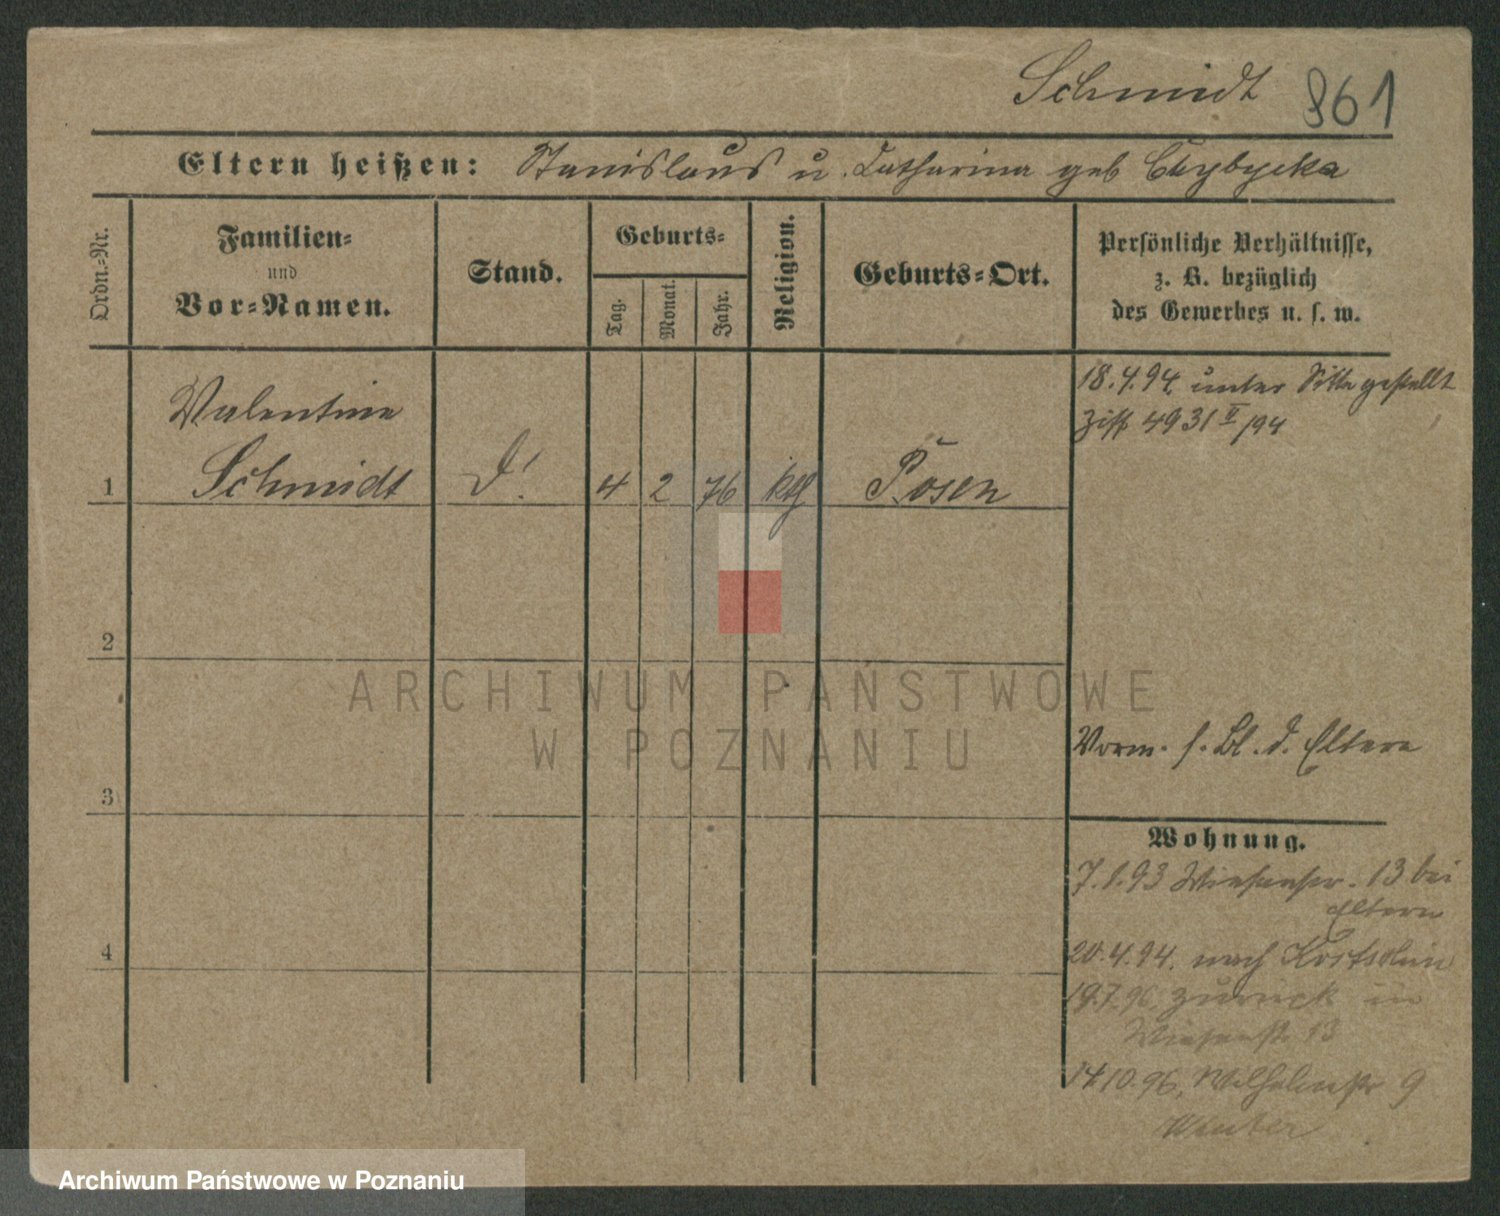 Schmidt 861
Eltern heißen: Stanislaus u. Catharina geb
Ordn.-Nr.
Familien-
und
Vor-Namen.
Stand.
Geburts-
Tag.
Monat.
Jahr.
Religion.
Geburts-Ort.
Persönliche Verhältnisse,
z. B. bezüglich
des Gewerbes u. s. w.
18.4.94. unter Sitte gestellt
4931 II/94
Valentine
1 Schmidt d! 4 2 76 kth Posen
2
ARCHIWUM PAŃSTWOWE
W POZNANIU
Vorm. s. Bl. d. Eltern
3
Wohnung.
7.1.93 Wiesenstr. 13 bei
Eltern
4
20.4.94. nach
19.7.96. zurück in
Wiesenstr 13
14.10.96. Wilhelmstr 9
Archiwum Państwowe w Poznaniu